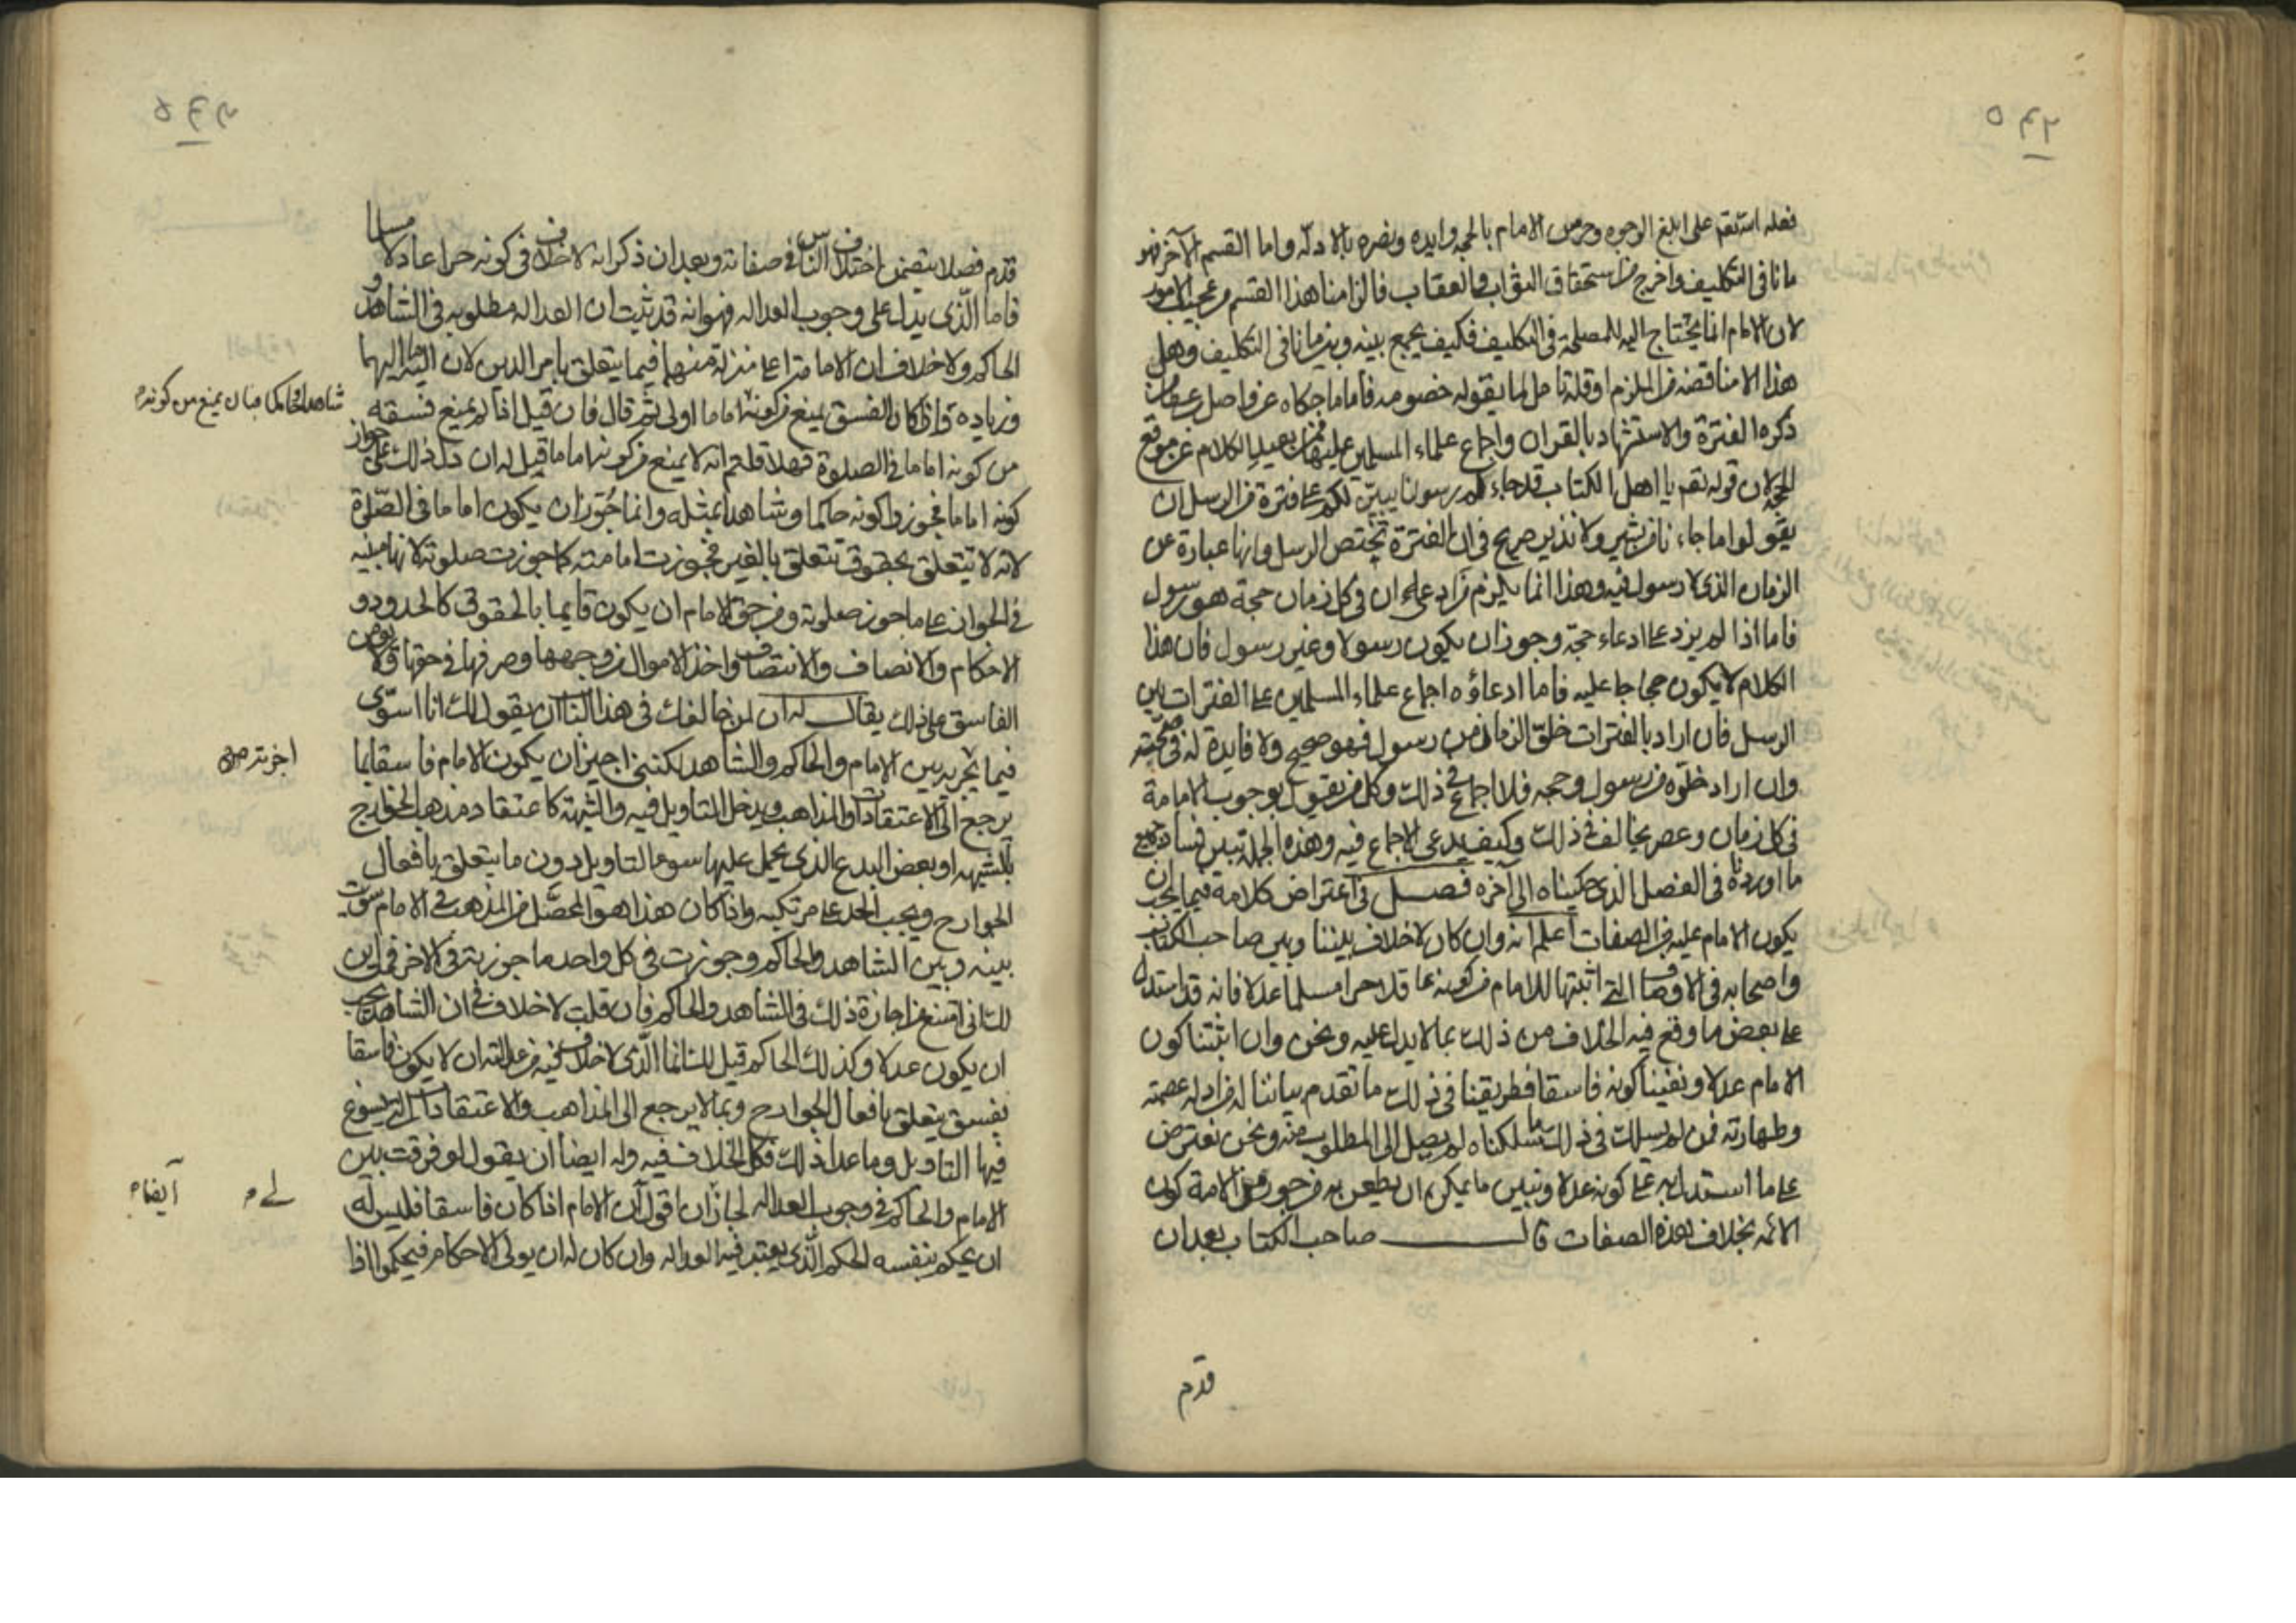 فعله استقم على ابلغ الوجوه وحرس الامام بالحجه وايده ونصره بالادلّه واما القسم الآخر فهو
ما نافى التكليف واخرج من استحقاق الثواب والعقاب فالزامنا هذا القسم من عجيب الامور
لان الامام انما يحتاج اليه للمصلحة فى التكليف فكيف يجمع بينه وبين ما نافى التكليف وهل
هذا الا مناقضه من الملزم او قلة تامل لما يقوله خصومه فاما ما حكاه عن واصل
ذكره الفترة والاستشهاد بالقران واجماع علماء المسلمين عليها فمن بعيد الكلام عن موقع
الحجه لان قوله تقم يا اهل الكتاب قد جاءكم رسولنا يبيّن لكم على فترة من الرسل ان
يقولوا ما جاءنا من بشير ولا نذير صريح فى ان الفترة تختص الرسل وانها عبارة عن
الزمان الذى لا رسول فيه وهذا انما يلزم من ادعى ان فى كل زمان حجة هو رسول
فاما اذا لم يزد على ادعاء حجّة وجوز ان يكون رسولا وغير رسول فان هذا
الكلام لا يكون حجاجا عليه فاما ادعاؤه اجماع علماء المسلمين على الفترات بين
الرسل فان اراد بالفترات خلوّ الزمان من رسول فهو صحيح ولا فايدة له فى صحّته
وان اراد خلوّه من رسول وحجه فلا اجماع فى ذلك وكل من يقول بوجوب الامامة
فى كل زمان وعصر يخالف فى ذلك وكيف يدعى الاجماع فيه وهذه الجملة تبين فساد جميع
ما اورده فى الفصل الذى حكيناه الى آخره فصـــل فى اعتراض كلامه فيما يجب ان
يكون الامام عليه من الصفات اعلم انه وان كان لا خلاف بيننا وبين صاحب الكتاب
واصحابه فى الاوصاف التى اثبتها للامام من كونه عاقلا حرا مسلما عدلا فانه قد استدل
على بعض ما وقع فيه الخلاف من ذلك بما لا يدل عليه ونحن وان اثبتنا كون
الامام عدلا ونفينا كونه فاسقا فطريقنا فى ذلك ما تقدم بياننا له من ادلة عصمته
وطهارته فمن لم يسلك فى ذلك ما سلكناه لم يصل الى المطلوب منه ونحن نعترض
على ما استدل به على كونه عدلا ونبين ما يمكن ان يطعن به من جوز من الامة كون
الائمه بخلاف هذه الصفات قالــــــ صاحب الكتاب بعد ان
قدم
قدم فصلا يتضمن اختلاف الناس فى صفاته وبعد ان ذكر انه لا خلاف فى كونه حرا عادلا مسلما
فاما الّذى يدل على وجوب العداله فهو انه قد ثبت ان العداله مطلوبه فى الشاهد و
الحاكم ولا خلاف ان الامامة اعلى منزلة منهما فيما يتعلق بامر الدين لان اليه ما اليهما
وزياده واذا كان الفسق يمنع من كونه اماما اولى ثم قال فان قيل اذا لم يمنع فسقه
شاهدا وحاكما فبان يمنع من كونه م
من كونه اماما فى الصلوة فهلا قلتم انه لا يمنع من كونه اماما قيل له ان دل ذلك على جواز
كونه اماما فجوز واكونه حاكما وشاهدا بمثله وانما جُوّز ان يكون اماما فى الصّلوة
لانه لا تتعلق بحقوق تتعلق بالغير فجوزت امامته كما جوزت صلوته لانها مبنيه
فى الجواز على ما جوز صلوته ومن حق الامام ان يكون قايما بالحقوق كالحدود و
الاحكام والانصاف والانتصاف واخذ الاموال من وجهها وصرفها فى حقها ولا يؤمن
الفاسق على ذلك يقالـــ له ان لمن خالفك فى هذا الباب ان يقول لك انا اسوّى
فيما تجريه بين الامام والحاكم والشاهد لكننى اجيز ان يكون الامام فاسقا بما
يرجع الى الاعتقادات والمذاهب ويدخل التاويل فيه والشبهة كاعتقاد مذهب الخوارج
بالتشبيه او بعض البدع الذى يحمل عليها سوء التاويل دون ما يتعلق بافعال
الجوارح ويجب الحد على مرتكبه واذا كان هذا هو المحصّل من المذهب فى الامام سوّيت
بينه وبين الشاهد والحاكم وجوزت فى كل واحد ما جوزته فى الاخر فمن اين
لك انى امتنع من اجازة ذلك فى الشاهد والحاكم فان قلت لا خلاف فى ان الشاهد يجب
ان يكون عدلا وكذلك الحاكم قيل لك انما الّذى لا خلاف فيه من عدالته ان لا يكون فاسقا
بفسق يتعلق بافعال الجوارح وبما لا يرجع الى المذاهب والاعتقادات التى يسوغ
فيها التاويل وما عدا ذلك فكل الخلاف فيه وله ايضا ان يقول لو فرقت بين
الامام والحاكم فى وجوب العداله لجاز ان اقول ان الامام اذا كان فاسقا فليس له
لى م
ايضا م
ان يحكم بنفسه الحكم الّذى يعتبر فيه العداله وان كان له ان يولى الاحكام فيحكموا اذا